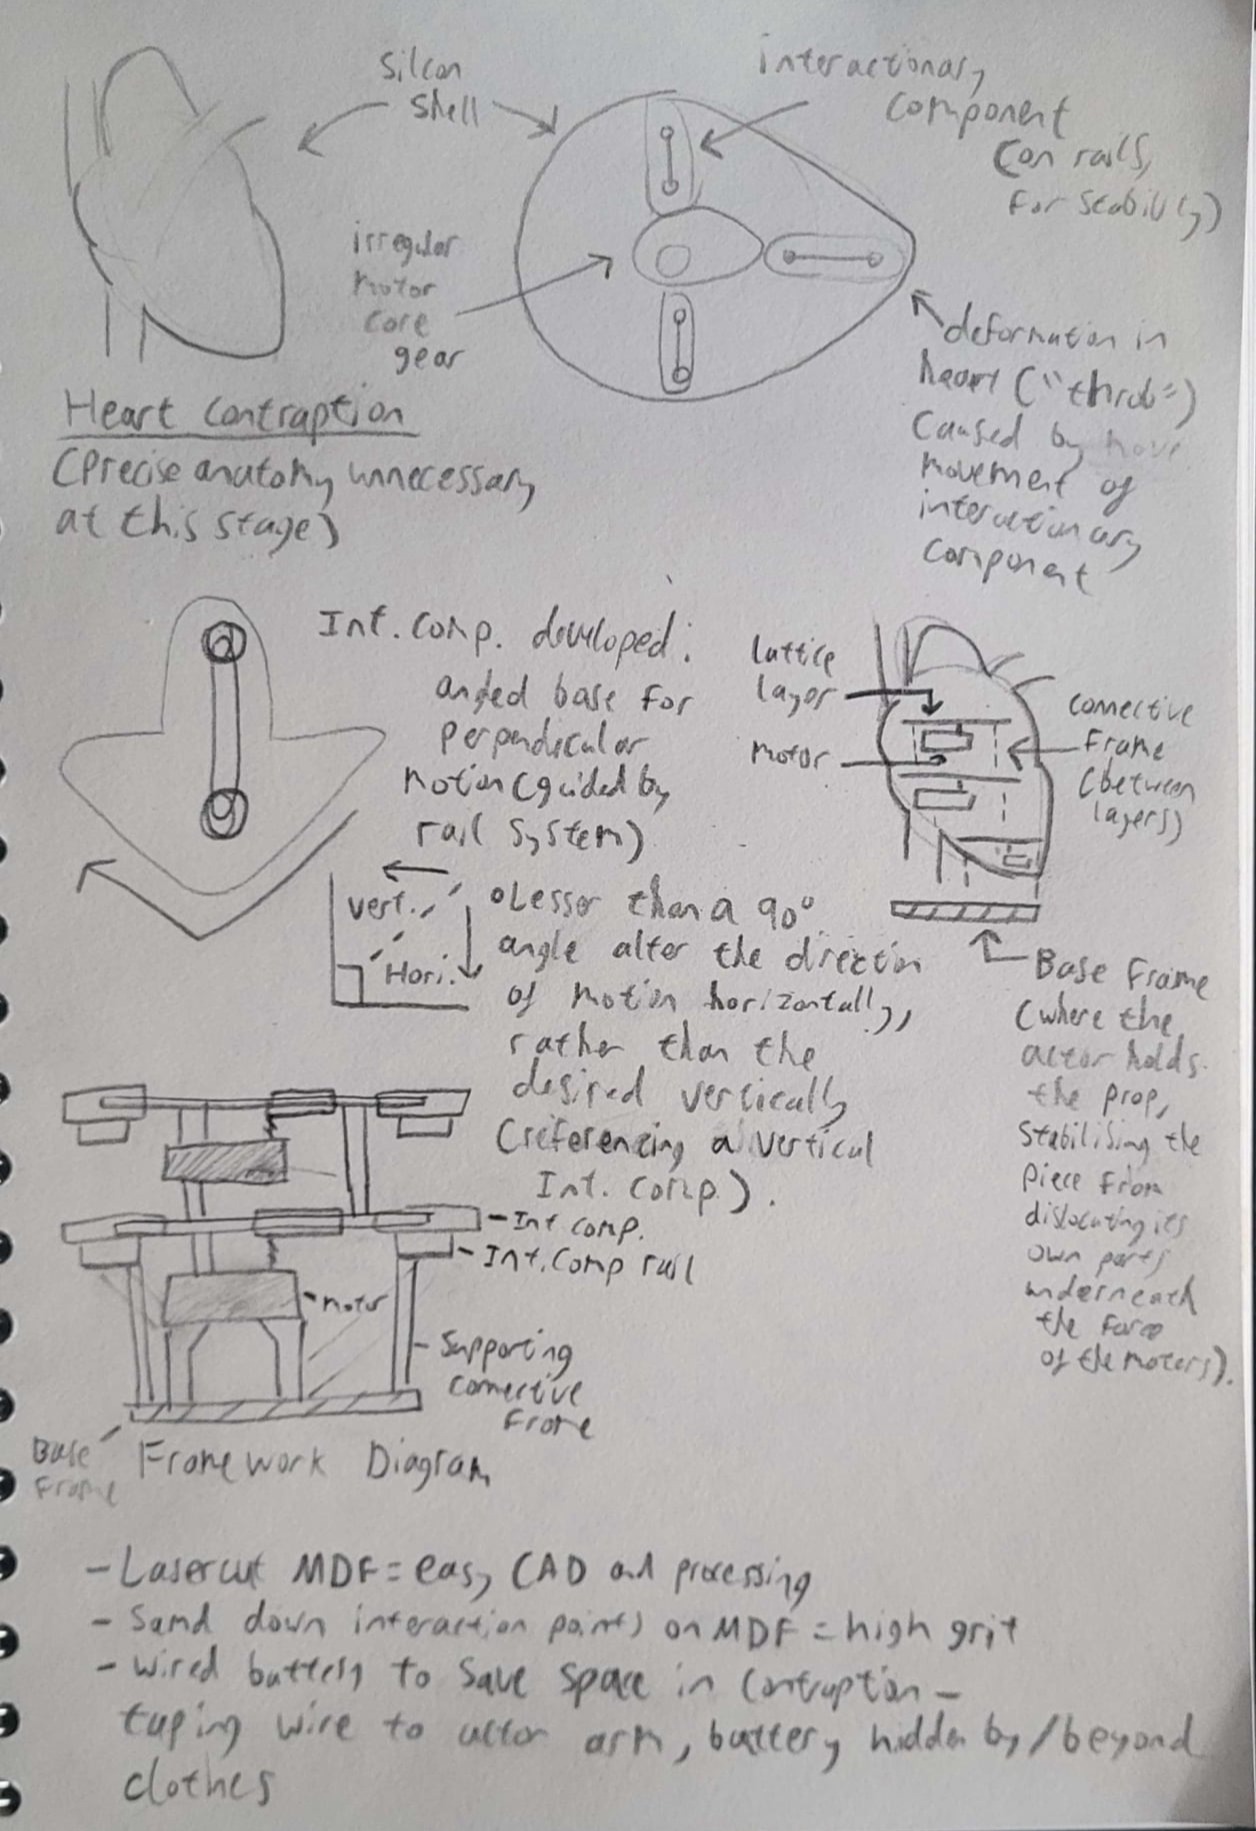 Silcon
Shell
interactionary
component
(on rails,
for stability)
irregular
motor
core
gear
deformation in
heart ("throb")
caused by move
movement of
interactionary
component
Heart contraption
(Precise anatomy unnecessary
at this stage)
Int. comp. developed:
angled base for
perpendicular
motion (guided by
rail system)
lattice
layer
motor
connective
frame
(between
layers)
vert.
Hori.
Lesser than a 90°
angle alter the direction
of motion horizontally,
rather than the
desired vertically
(referencing a vertical
Int. comp.).
Base Frame
(where the
actor holds
the prop,
stabilising the
piece from
dislocating its
own parts
underneath
the force
of the motors).
-Int comp.
-Int. Comp rail
-motor
-Supporting
connective
frame
Base
Frame
Framework Diagram
-Lasercut MDF = easy CAD and processing
-Sand down interaction points on MDF = high grit
-Wired battery to save space in contraption -
taping wire to actor arm, battery hidden by/beyond
clothes